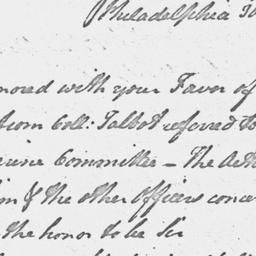 Philadelphia
nored with your Favor of
from Coll: Talbot referred to
arine Committee — The Acti
im & the other Officers conce
the honor to be Sir